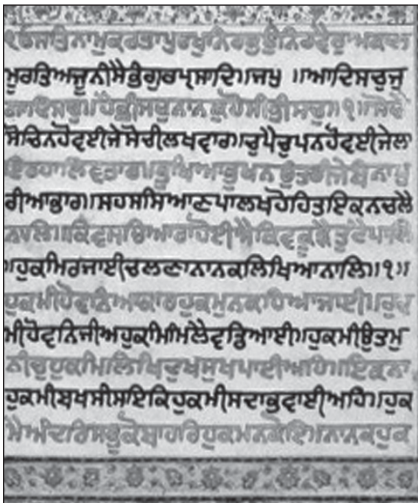 ੴਸਤਿਨਾਮੁਕਰਤਾਪੁਰਖੁਨਿਰਭਉਨਿਰਵੈਰੁਅਕਾਲ
ਮੂਰਤਿਅਜੂਨੀਸੈਭੰਗੁਰਪ੍ਰਸਾਦਿ॥ਜਪੁ ॥ਆਦਿਸਚੁਜੁ
ਗਾਦਿਸਚੁ॥ਹੈਭੀਸਚੁਨਾਨਕਹੋਸੀਭੀਸਚੁ॥੧॥ਸੋਚੈ
ਸੋਚਿਨਹੋਵਈਜੇਸੋਚੀਲਖਵਾਰ॥ਚੁਪੈਚੁਪਨਹੋਵਈਜੇਲਾ
ਇਰਹਾਲਿਵਤਾਰ॥ਭੁਖਿਆਭੁਖਨਉਤਰੀਜੇਬੰਨਾਪੁ
ਰੀਆਭਾਰ॥ਸਹਸਸਿਆਣਪਾਲਖਹੋਹਿਤਇਕਨਚਲੈ
ਨਾਲਿ॥ਕਿਵਸਚਿਆਰਾਹੋਈਐਕਿਵਕੂੜੈਤੁਟੈਪਾਲਿ
॥ਹੁਕਮਿਰਜਾਈਚਲਣਾਨਾਨਕਲਿਖਿਆਨਾਲਿ॥੧॥
ਹੁਕਮੀਹੋਵਨਿਆਕਾਰਹੁਕਮੁਨਕਹਿਆਜਾਈ॥ਹੁਕ
ਮੀਹੋਵਨਿਜੀਅਹੁਕਮਿਮਿਲੈਵਡਿਆਈ॥ਹੁਕਮੀਉਤਮੁ
ਨੀਚੁਹੁਕਮਿਲਿਖਿਦੁਖਸੁਖਪਾਈਅਹਿ॥ਇਕਨਾ
ਹੁਕਮੀਬਖਸੀਸਇਕਿਹੁਕਮੀਸਦਾਭਵਾਈਅਹਿ॥ਹੁਕ
ਮੈਅੰਦਰਿਸਭੁਕੋਬਾਹਰਿਹੁਕਮਨਕੋਇ॥ਨਾਨਕਹੁਕ